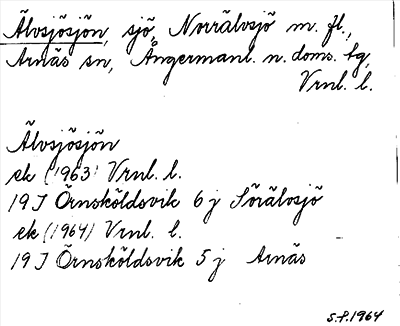 Älvsjösjön, sjö, Norrälvsjö m. fl.,
Arnäs sn, Ångermanl. n. doms. tg,
Vrnl. l.
Älvsjösjön
ek (1963) Vrnl. l.
19 J Örnsköldsvik 6 j Sörälvsjö
ek (1964) Vrnl. l.
19 J Örnsköldsvik 5 j Arnäs
S.f. 1964